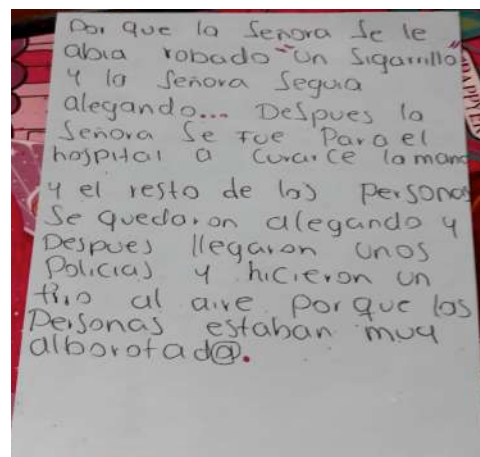 Por que la Señora Se le
abia robado "un Sigarrillo"
y la Señora Seguia
alegando... DeSpues la
Señora Se Fue Para el
hospital a Curarce la mano
y el resto de las Personas
Se quedaron alegando y
Despues llegaron unos
Policias y hicieron un
tiro al aire Por que las
Personas estaban muy
alborotad@.